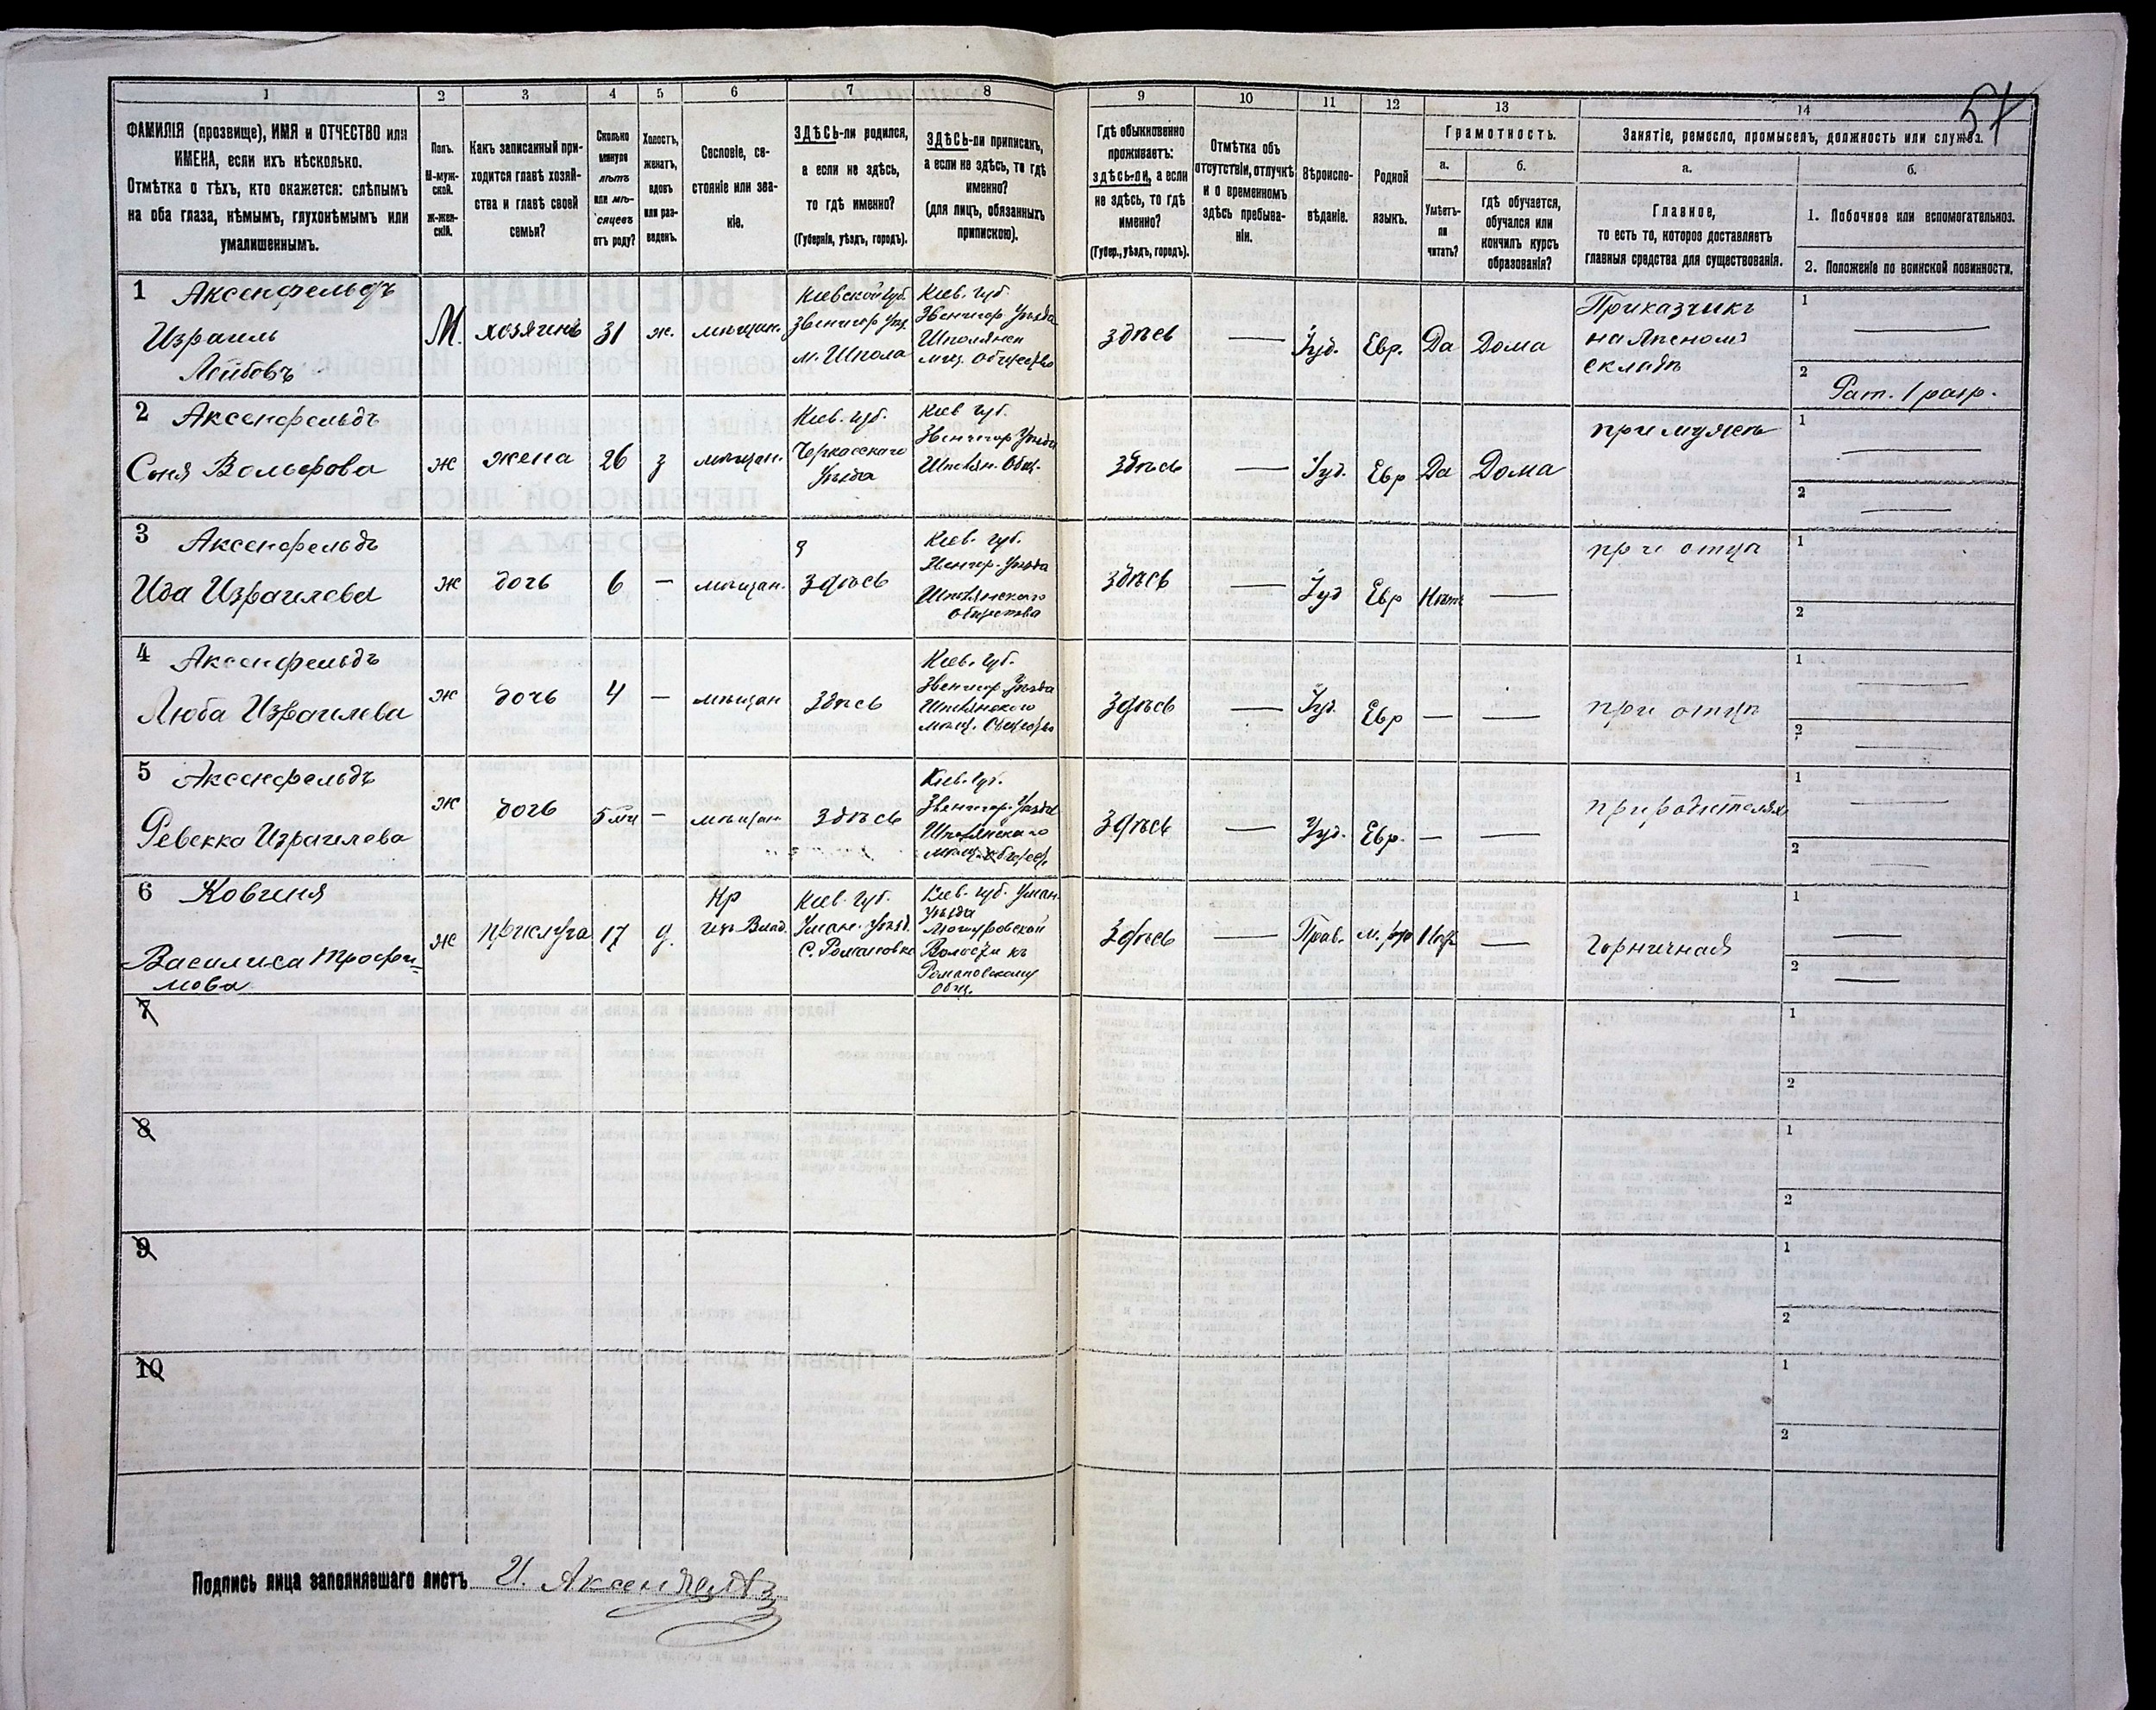 57
1 2 3 4 5 6 7 8 9 10 11 12 13 14
ФАМИЛІЯ (прозвище), ИМЯ и ОТЧЕСТВО или
ИМЕНА, если ихъ нѣсколько.
Отмѣтка о тѣхъ, кто окажется: слѣпымъ
на оба глаза, нѣмымъ, глухонѣмымъ или
умалишеннымъ.
Полъ.
М-муж-
ской.
Ж-жен-
скій.
Какъ записанный при-
ходится главѣ хозяй-
ства и главѣ своей
семьи?
Сколько
минуло
лѣтъ
или мѣ-
сяцевъ
отъ роду?
Холостъ,
женатъ,
вдовъ
или раз-
веденъ.
Сословіе, со-
стояніе или зва-
ніе.
ЗДѢСЬ-ли родился,
а если не здѣсь,
то гдѣ именно?
(Губернія, уѣздъ, городъ).
ЗДѢСЬ-ли приписанъ,
а если не здѣсь, то гдѣ
именно?
(для лицъ, обязанныхъ
припискою).
Гдѣ обыкновенно
проживаетъ:
здѣсь-ли, а если
не здѣсь, то гдѣ
именно?
(Губер., уѣздъ, городъ).
Отмѣтка объ
отсутствіи, отлучкѣ
и о временномъ
здѣсь пребыва-
ніи.
Вѣроиспо-
вѣданіе.
Родной
языкъ.
Грамотность.
а.
Умѣетъ-
ли
читать?
б.
гдѣ обучается,
обучался или
кончилъ курсъ
образованія?
Занятіе, ремесло, промыселъ, должность или служба.
а.
Главное,
то есть то, которое доставляетъ
главныя средства для существованія.
б.
1. Побочное или вспомогательное.
2. Положеніе по воинской повинности.
1 Аксенфельдъ
Израиль
Лейбовъ
М. хозяинъ 31 ж. мѣщан.
Кіевской Губ.
Звенигор Уѣз.
м. Шпола
Кіев. Губ.
Звенигор Уѣзда
Шполянск
мѣщ. Общество
здѣсь — Іуд. Евр. Да Дома
Приказчикъ
на Лѣсномъ
складѣ
1 —
2 Рат. 1 разр.
2 Аксенфельдъ
Соня Вольфова
ж жена 26 з мѣщан.
Кіев. губ.
Черкасскаго
Уѣзда
Кіев губ.
Звенигор Уѣзда
Шполян. Общ.
здѣсь — Іуд. Евр Да Дома
при мужѣ
1 —
2 —
3 Аксенфельдъ
Ида Израилева
ж дочь 6 — мѣщан. Здѣсь
Кіев. губ.
Звенигор. Уѣзда
Шполянскаго
Общества
здѣсь — Іуд Евр Нѣтъ —
при отцѣ
1
2
4 Аксенфельдъ
Люба Израилева
ж дочь 4 — мѣщан Здѣсь
Кіев. губ.
Звенигор. Уѣзда
Шполянского
мѣщ. Общество
Здѣсь — Іуд. Евр — —
при отцѣ
1 —
2 —
5 Аксенфельдъ
Ревекка Израилева
ж дочь 5 мѣ — мѣщан Здѣсь
Кіев. губ.
Звенигор. Уѣзда
Шполянскаго
мѣщ. Общест.
Здѣсь — Іуд. Евр. — —
при родителяхъ
1 —
2 —
6 Ковгиня
Василиса Трофи=
мова
ж прислуга 17 д.
Кр
изъ Влад.
Кіев. Губ.
Уман. Уѣзд.
С. Романовка
Кіев. губ. Уман.
Уѣзда
Волости къ
Романовскому
Общ.
Здѣсь — Прав. Нѣтъ —
Горничная
1 —
2 —
7
1
2
8
1
2
9
1
2
10
1
2
Подпись лица заполнявшаго листъ И. Аксенфельдъ